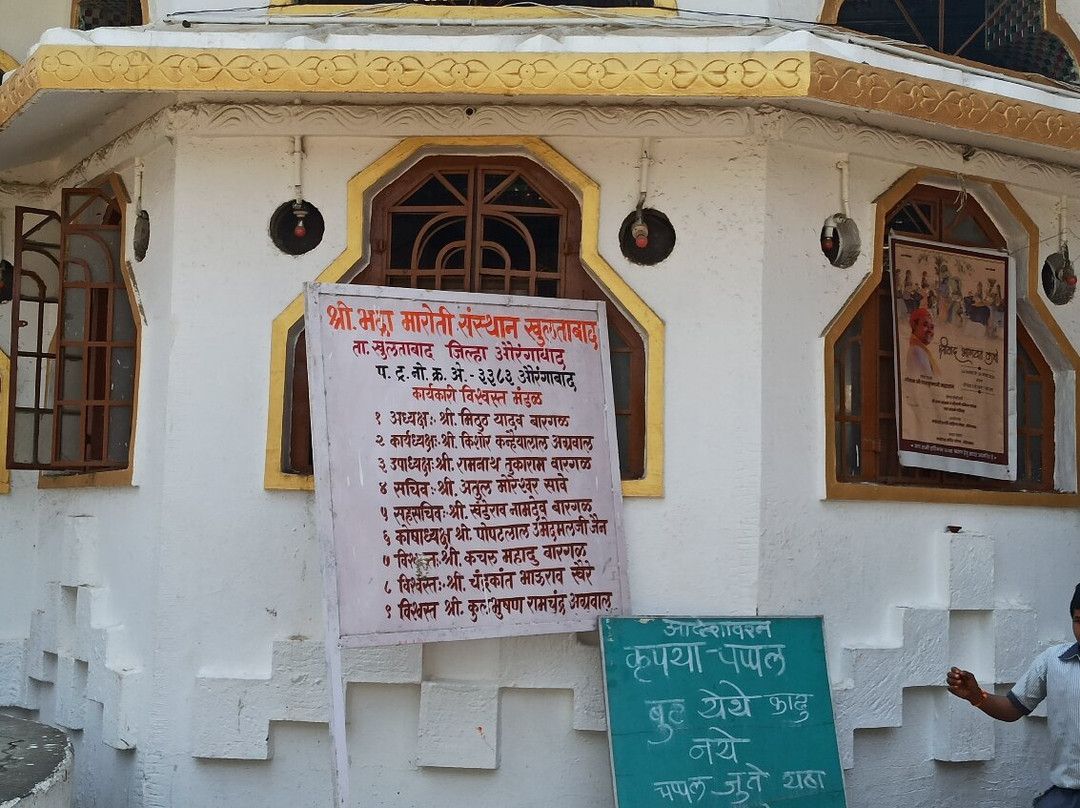 श्री. भद्रा मारोती संस्थान खुलताबाद
ता. खुलताबाद जिल्हा औरंगाबाद
प. ट्र. नो. क्र. अे. - ३३८३ औरंगाबाद
कार्यकारी विश्वस्त मंडळ
१ अध्यक्षः- श्री. मिठ्ठु यादव बारगळ
२ कार्यध्यक्षः श्री. किशोर कन्हैयालाल अग्रवाल
३ उपाध्यक्षः श्री. रामनाथ तुकाराम बारगळ
४ सचिवः- श्री. अतुल मोरेश्वर सावे
५ सहसचिवः- श्री. खंडेराव नामदेव बारगळ
६ कोषाध्यक्ष श्री. पोपटलाल उमेदमलजी जैन
७ श्री. कचरू महादु बारगळ
८ विश्वस्तः- श्री. चंद्रकांत भाऊराव खैरे
९ विश्वस्त श्री. कुलभुषण रामचंद्र अग्रवाल
आदेशावरून
कृपया - चप्पल
बुट येथे काढु
नये
चप्पल जुते यहा